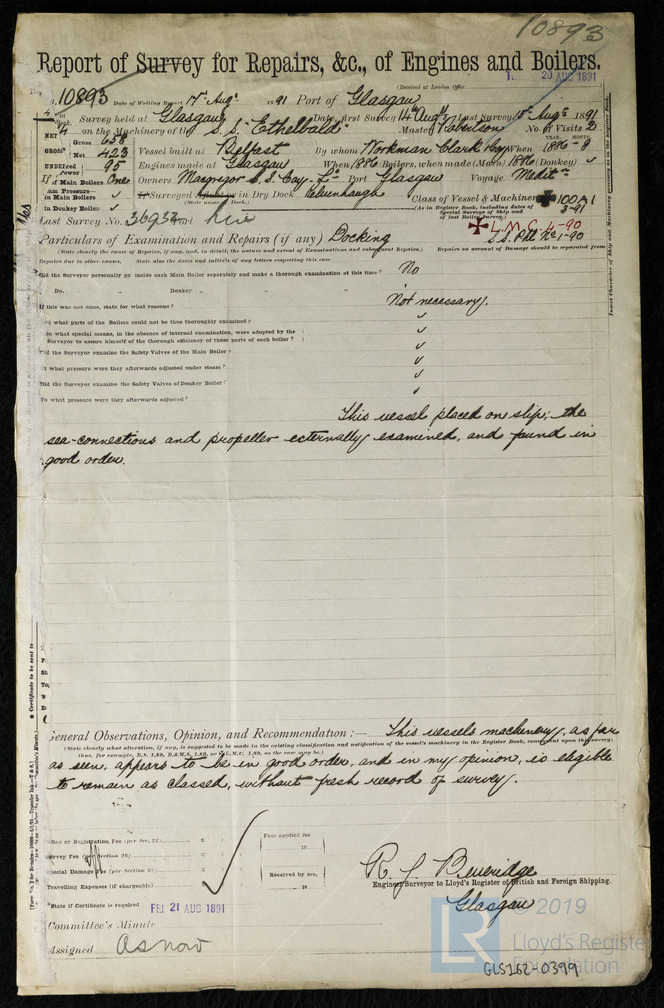 10893
Report of Survey for Repairs, &c., of Engines and Boilers.
(Received at London Office
20 AUG 1891
No. 10893 Date of Writing Report 17th Augt 1891 Port of Glasgow
Survey held at Glasgow Date, first Survey 14th Augt Last Survey 15th Augt 1891
on the Machinery of the S.S. "Ethelbald" Master Robertson No. of Visits 2
Gross 658
Net 423 Vessel built at Belfast By whom Workman Clark & Co When 1886-8
YEAR. MONTH.
95 Engines made at Glasgow When 1886 Boilers, when made (Main) 1886 (Donkey) ✓
Main Boilers One Owners Macgregor S.S. Coy. Ld. Port Glasgow Voyage Meditn
in Main Boilers ✓ If Surveyed Afloat or in Dry Dock Kelvinhaugh
(State name of Dock.)
in Donkey Boiler ✓
Class of Vessel & Machinery 100A1
(As in Register Book, including dates of Special Surveys of Ship and of last Boiler Survey.)
2-91
L.M.C. 4-90
Last Survey No. 36932 Port
Particulars of Examination and Repairs (if any) Docking
(State clearly the cause of Repairs, if any, and, in detail, the nature and extent of Examinations and subsequent Repairs.)
Repairs on account of Damage should be separated from
Repairs due to other causes. State also the dates and initials of any letters respecting this case
Did the Surveyor personally go inside each Main Boiler separately and make a thorough examination at this time? No
Do. „ Donkey „ „ „
If this was not done, state for what reasons? Not necessary.
what parts of the Boilers could not be thus thoroughly examined? ✓
what special means, in the absence of internal examination, were adopted by the
Surveyor to assure himself of the thorough efficiency of those parts of each boiler? ✓
Did the Surveyor examine the Safety Valves of the Main Boiler? ✓
what pressure were they afterwards adjusted under steam? ✓
Did the Surveyor examine the Safety Valves of Donkey Boiler? ✓
To what pressure were they afterwards adjusted? ✓
This vessel placed on slip; the
sea-connections and propeller externally examined, and found in
good order.
General Observations, Opinion, and Recommendation:— This vessels machinery, as far
(State clearly what alteration, if any, is suggested to be made in the existing classification and notification of the vessel's machinery in the Register Book, consequent upon this survey:
thus, for example, B.S. 1.89, B.&M.S. 1.89, or L.M.C. 1.89, as the case may be.)
as seen, appears to be in good order, and in my opinion, is eligible
to remain as classed, without fresh record of survey.
or Registration Fee (per Sec. 27)
Survey Fee (per Section 28)
Special Damage Fee (per Section 28)
Travelling Expenses (if chargeable)
Fees applied for
18
Received by me,
18
R. J. Beveridge
Engineer Surveyor to Lloyd's Register of British and Foreign Shipping.
Glasgow
State if Certificate is required
FRI 21 AUG 1891
Committee's Minute
Assigned As now
LR
© 2019
Lloyd's Register
Foundation
GLS162-0399